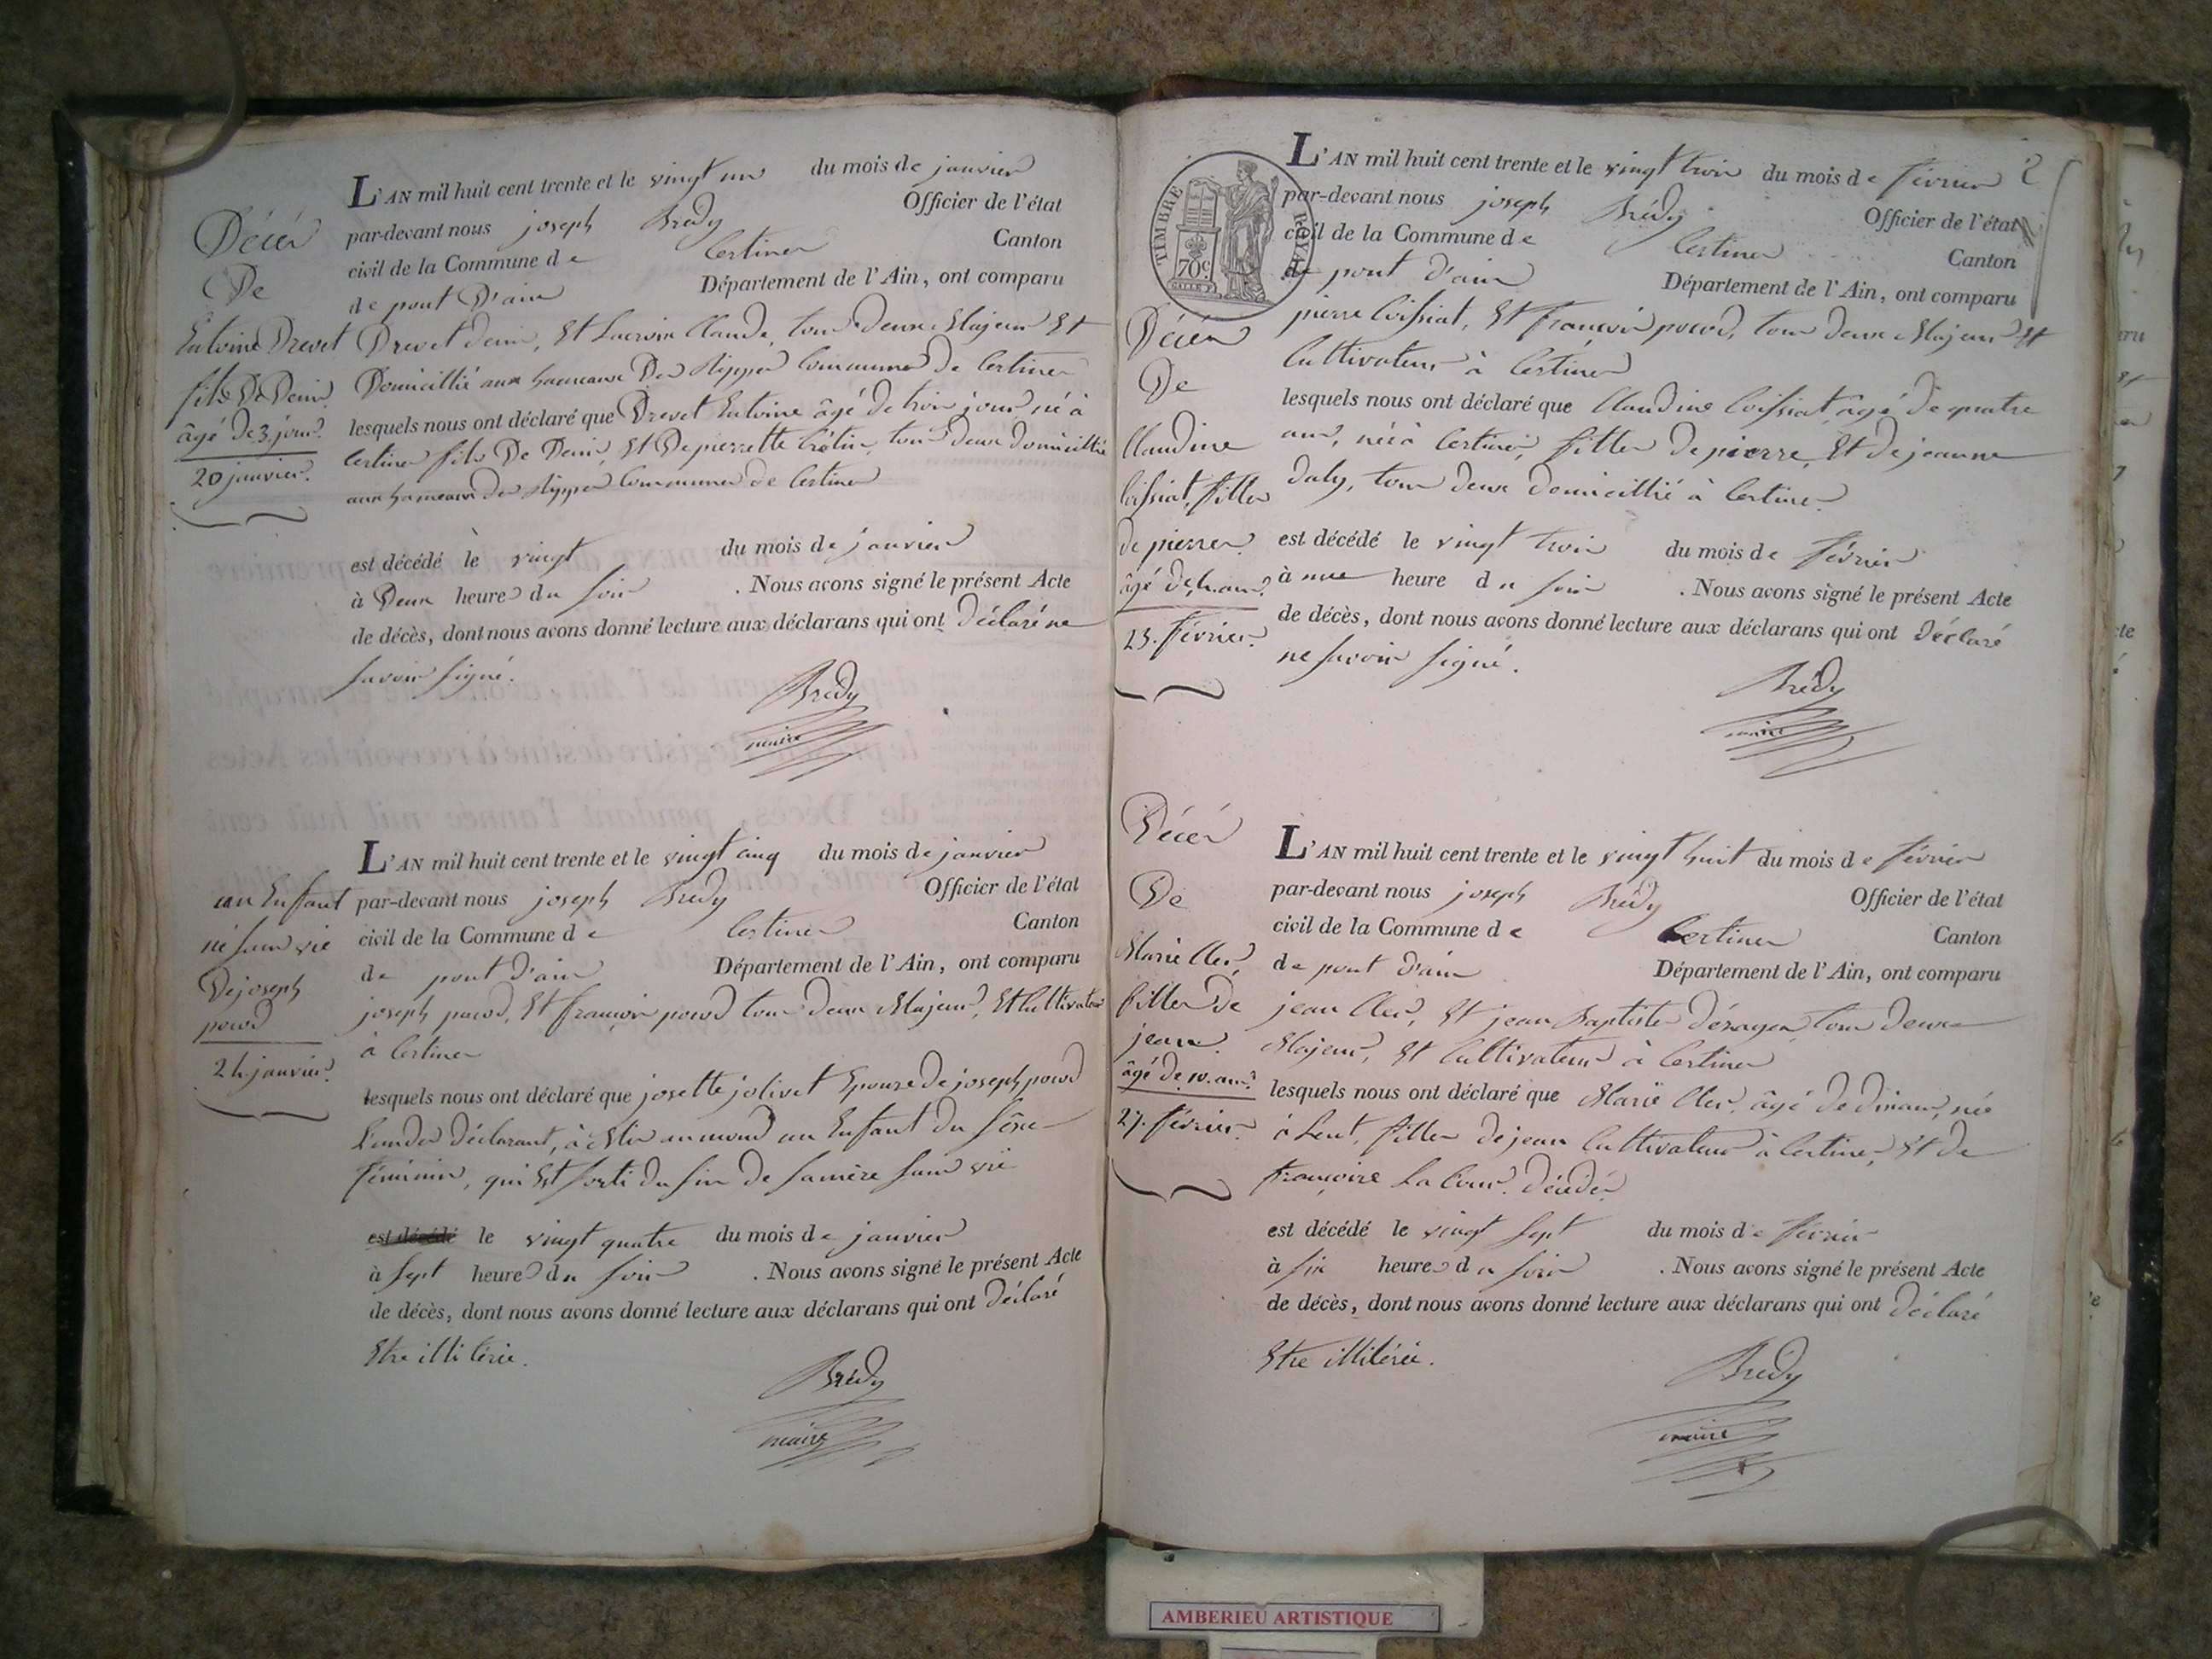 L'AN mil huit cent trente et le vingt un du mois de janvier
par-devant nous joseph Bredy Officier de l'état
civil de la Commune de Certines Canton
de pont D'ain Département de l'Ain, ont comparu
Drevet denis, Et Lacroix Claude, tous deux Majeur Et
Domicillié aux hameaux Des Rippes Commune De Certines
lesquels nous ont déclaré que Drevet Entoine âgé De trois jours né à
Certines fils De Denis, Et De pierrette tous Deux Domicillié
aux hameaux Des Rippes Commune de Certines
est décédé le vingt du mois de janvier
à Deux heures du soir . Nous avons signé le présent Acte
de décès, dont nous avons donné lecture aux déclarans qui ont Déclaré ne
savoir signé.
Bredy
maire
Décès
De
Entoine Drevet
fils De Denis
âgé De 3. jours.
20 janvier.
L'AN mil huit cent trente et le vingt cinq du mois de janvier
par-devant nous joseph Bredy Officier de l'état
civil de la Commune de Certines Canton
de pont d'ain Département de l'Ain, ont comparu
joseph pocod, Et françois pocod tous deux Majeur, Et Cultivateur
à Certines
lesquels nous ont déclaré que josette jolivet Epouse De joseph pocod
L'un des Déclarant, à Mis au mond un Enfant Du Sêxe
féminin, qui Est sorti du sin De sa mère sans vie
est décédé le vingt quatre du mois de janvier
à Sept heures du soir . Nous avons signé le présent Acte
de décès, dont nous avons donné lecture aux déclarans qui ont Déclaré
Etre illitérée.
Bredy
maire
un Enfant
né sans vie
De joseph
pocod
24. janvier.
2
TIMBRE ROYAL
70c
L'AN mil huit cent trente et le vingt trois du mois de février
par-devant nous joseph Brédy Officier de l'état
civil de la Commune de Certines Canton
de pont d'ain Département de l'Ain, ont comparu
pierre Loissiat, Et françois pocod, tous deux Majeur Et
Cultivateurs à Certines
lesquels nous ont déclaré que Claudine Loissiat, âgé De quatre
ans, né à Certines, filles De pierre, Et De jeanne
Daly, tous deux Domicillié à Certines
est décédé le vingt trois du mois de février
à une heure du soir . Nous avons signé le présent Acte
de décès, dont nous avons donné lecture aux déclarans qui ont Déclaré
ne savoir signé.
Brédy
maire
Décès
De
Claudine
Loissiat, filles
de pierre.
âgé De 4. ans.
23. février.
L'AN mil huit cent trente et le vingt huit du mois de février
par-devant nous joseph Brédy Officier de l'état
civil de la Commune de Certines Canton
de pont d'ain Département de l'Ain, ont comparu
jean Cler, Et jean Baptiste tous deux
Majeur, Et Cultivateurs à Certines
lesquels nous ont déclaré que Marie Cler, âgé De Dix ans, née
à Lent, filles De jean Cultivateur à Certines, Et De
françoise La Cour. Décédés
est décédé le vingt Sept du mois de février
à Six heures du soir . Nous avons signé le présent Acte
de décès, dont nous avons donné lecture aux déclarans qui ont Déclaré
Etre illitérée.
Bredy
maire
Décès
De
Marie Cler,
filles De
jean.
âgé De 10. ans.
27. février.
AMBERIEU ARTISTIQUE